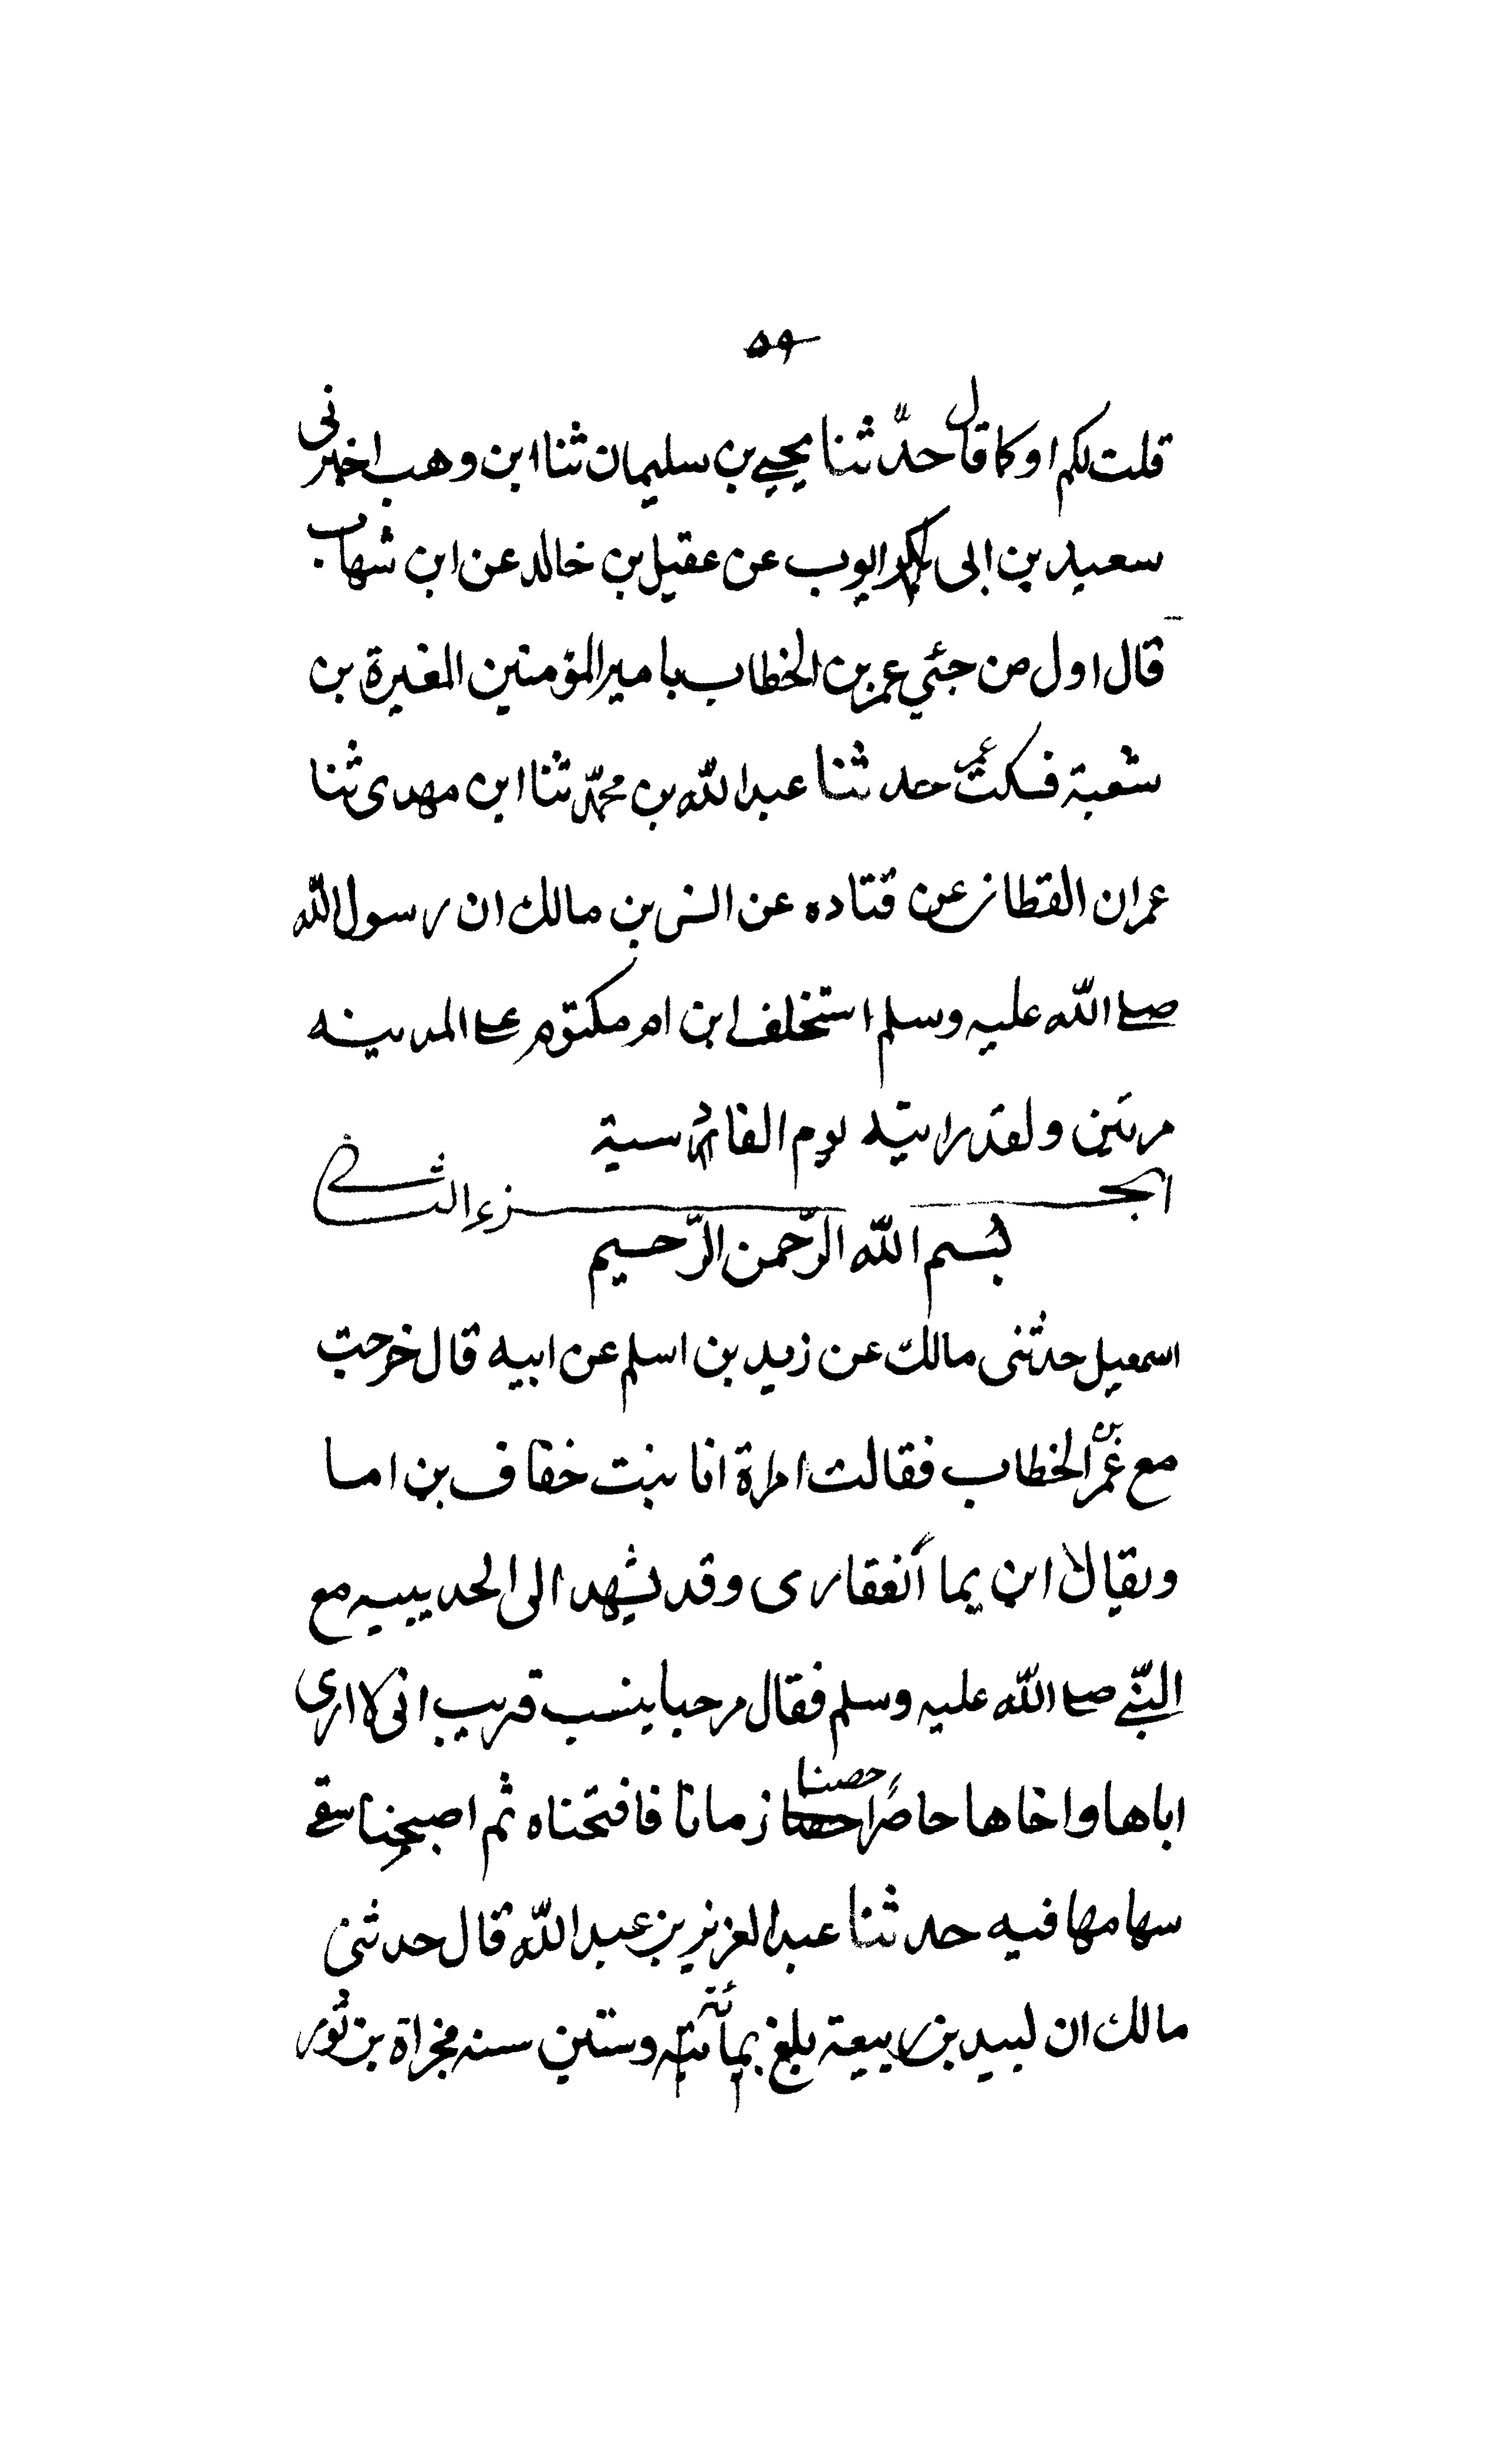 ٥٩
قلت لكم او كما قال حدّثنا يحيى بن سليمان ثنا ابن وهب اخبرنى
سعيد بن ابى ايوب عن عقيل بن خالد عن ابن شهاب
قال اول من جئي عمر بن الخطاب بامير المؤمنين المغيرة بن
شعبة فسكت عمر حدثنا عبد الله بن محمّد ثنا ابن مهدى ثنا
عمران القطان عن قتاده عن انس بن مالك ان رسول الله
صلى الله عليه وسلم استخلف ابن ام مكتوم على المدينه
مرتين ولقد رايته يوم القادسية
الجزء الثانى
بسم الله الرّحمن الرّحيم
اسمعيل حدثنى مالك عن زيد بن اسلم عن ابيه قال خرجت
مع عمر بن الخطاب فقالت امراة انا بنت خفاف بن اما
ويقال ابن يما الغفارى وقد شهد الى الحديبيه مع
النبّى صلى الله عليه وسلم فقال مرحبا بنسب قريب انى لا ارى
اباها واخاها حاصرا حصنا زمانا فافتحناه ثم اصبحنا
سهامها فيه حدثنا عبد العزيز بن عبد الله قال حدثنى
مالك ان لبيد بن ربيعة بلغ مائة وستين سنه مجزاة بن ثور